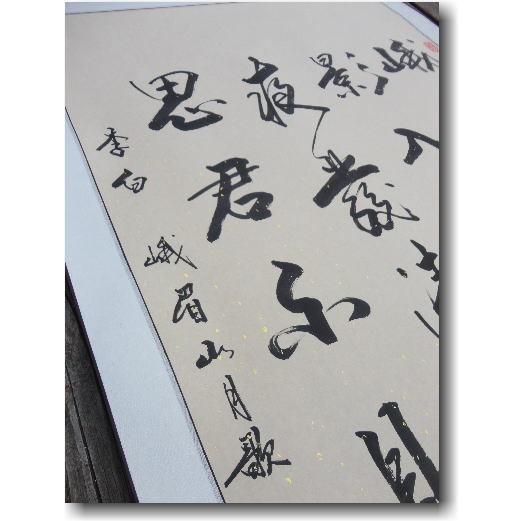 峨
影入
夜發
思君不
李白 峨眉山月歌